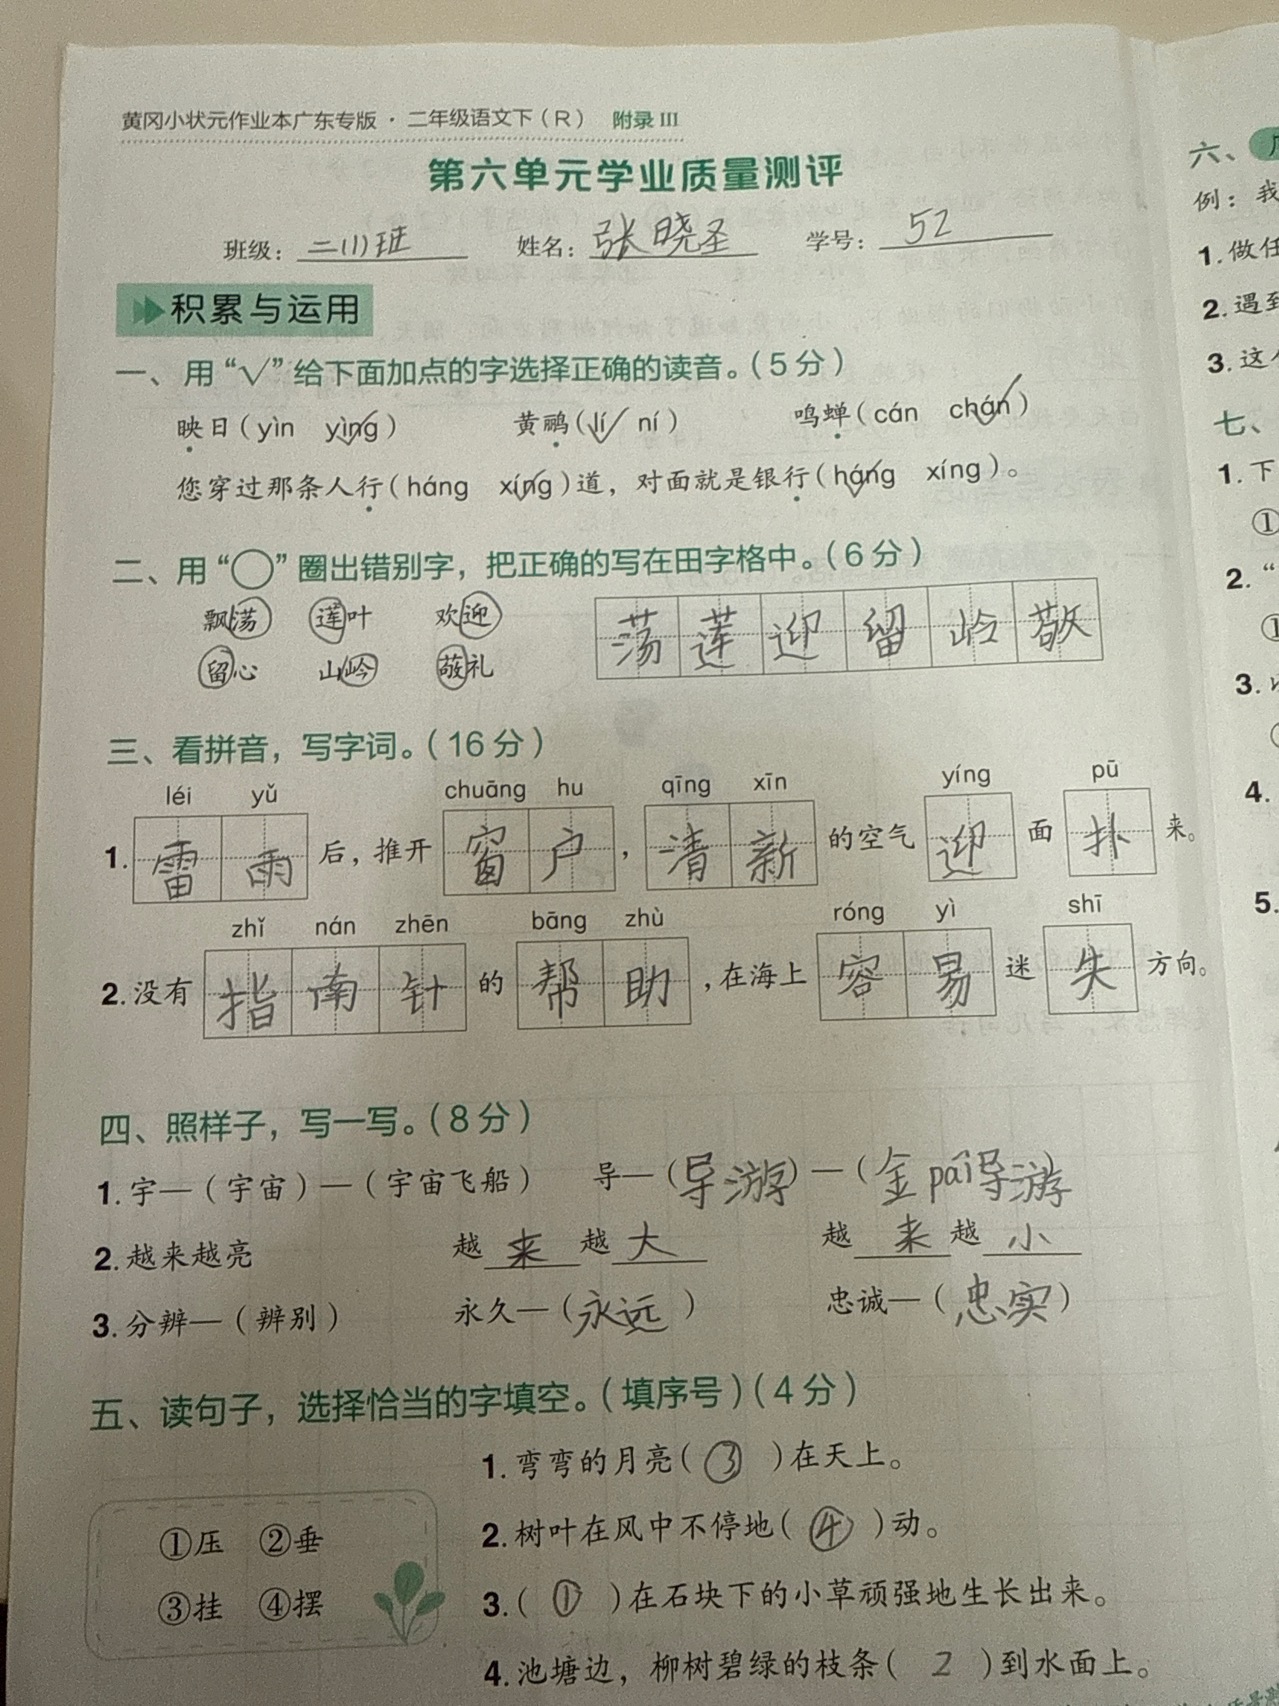 黄冈小状元作业本广东专版·二年级语文下(R) 附录III
第六单元学业质量测评
班级：二(1)班 姓名：张晓圣 学号：52
积累与运用
一、用“√”给下面加点的字选择正确的读音。(5分)
映日(yìn yìng√) 黄鹂(lí√ ní) 鸣蝉(cán chán√)
您穿过那条人行(háng xíng√)道，对面就是银行(háng√ xíng)。
二、用“○”圈出错别字，把正确的写在田字格中。(6分)
飘荡 莲叶 欢迎 荡莲迎留岭敬
留心 山岭 敬礼
三、看拼音，写字词。(16分)
léi yǔ chuāng hu qīng xīn yíng pū
1.雷雨后，推开窗户，清新的空气迎面扑来。
zhǐ nán zhēn bāng zhù róng yì shī
2.没有指南针的帮助，在海上容易迷失方向。
四、照样子，写一写。(8分)
1.宇—(宇宙)—(宇宙飞船) 导—(导游)—(金pái导游)
2.越来越亮 越来越大 越来越小
3.分辨—(辨别) 永久—(永远) 忠诚—(忠实)
五、读句子，选择恰当的字填空。(填序号)(4分)
1.弯弯的月亮(③)在天上。
①压 ②垂
2.树叶在风中不停地(④)动。
③挂 ④摆
3.(①)在石块下的小草顽强地生长出来。
4.池塘边，柳树碧绿的枝条(2)到水面上。
六、
例：我
1.做任
2.遇到
3.这
七、
1.下
①
2.“
①
3.
4.
5.